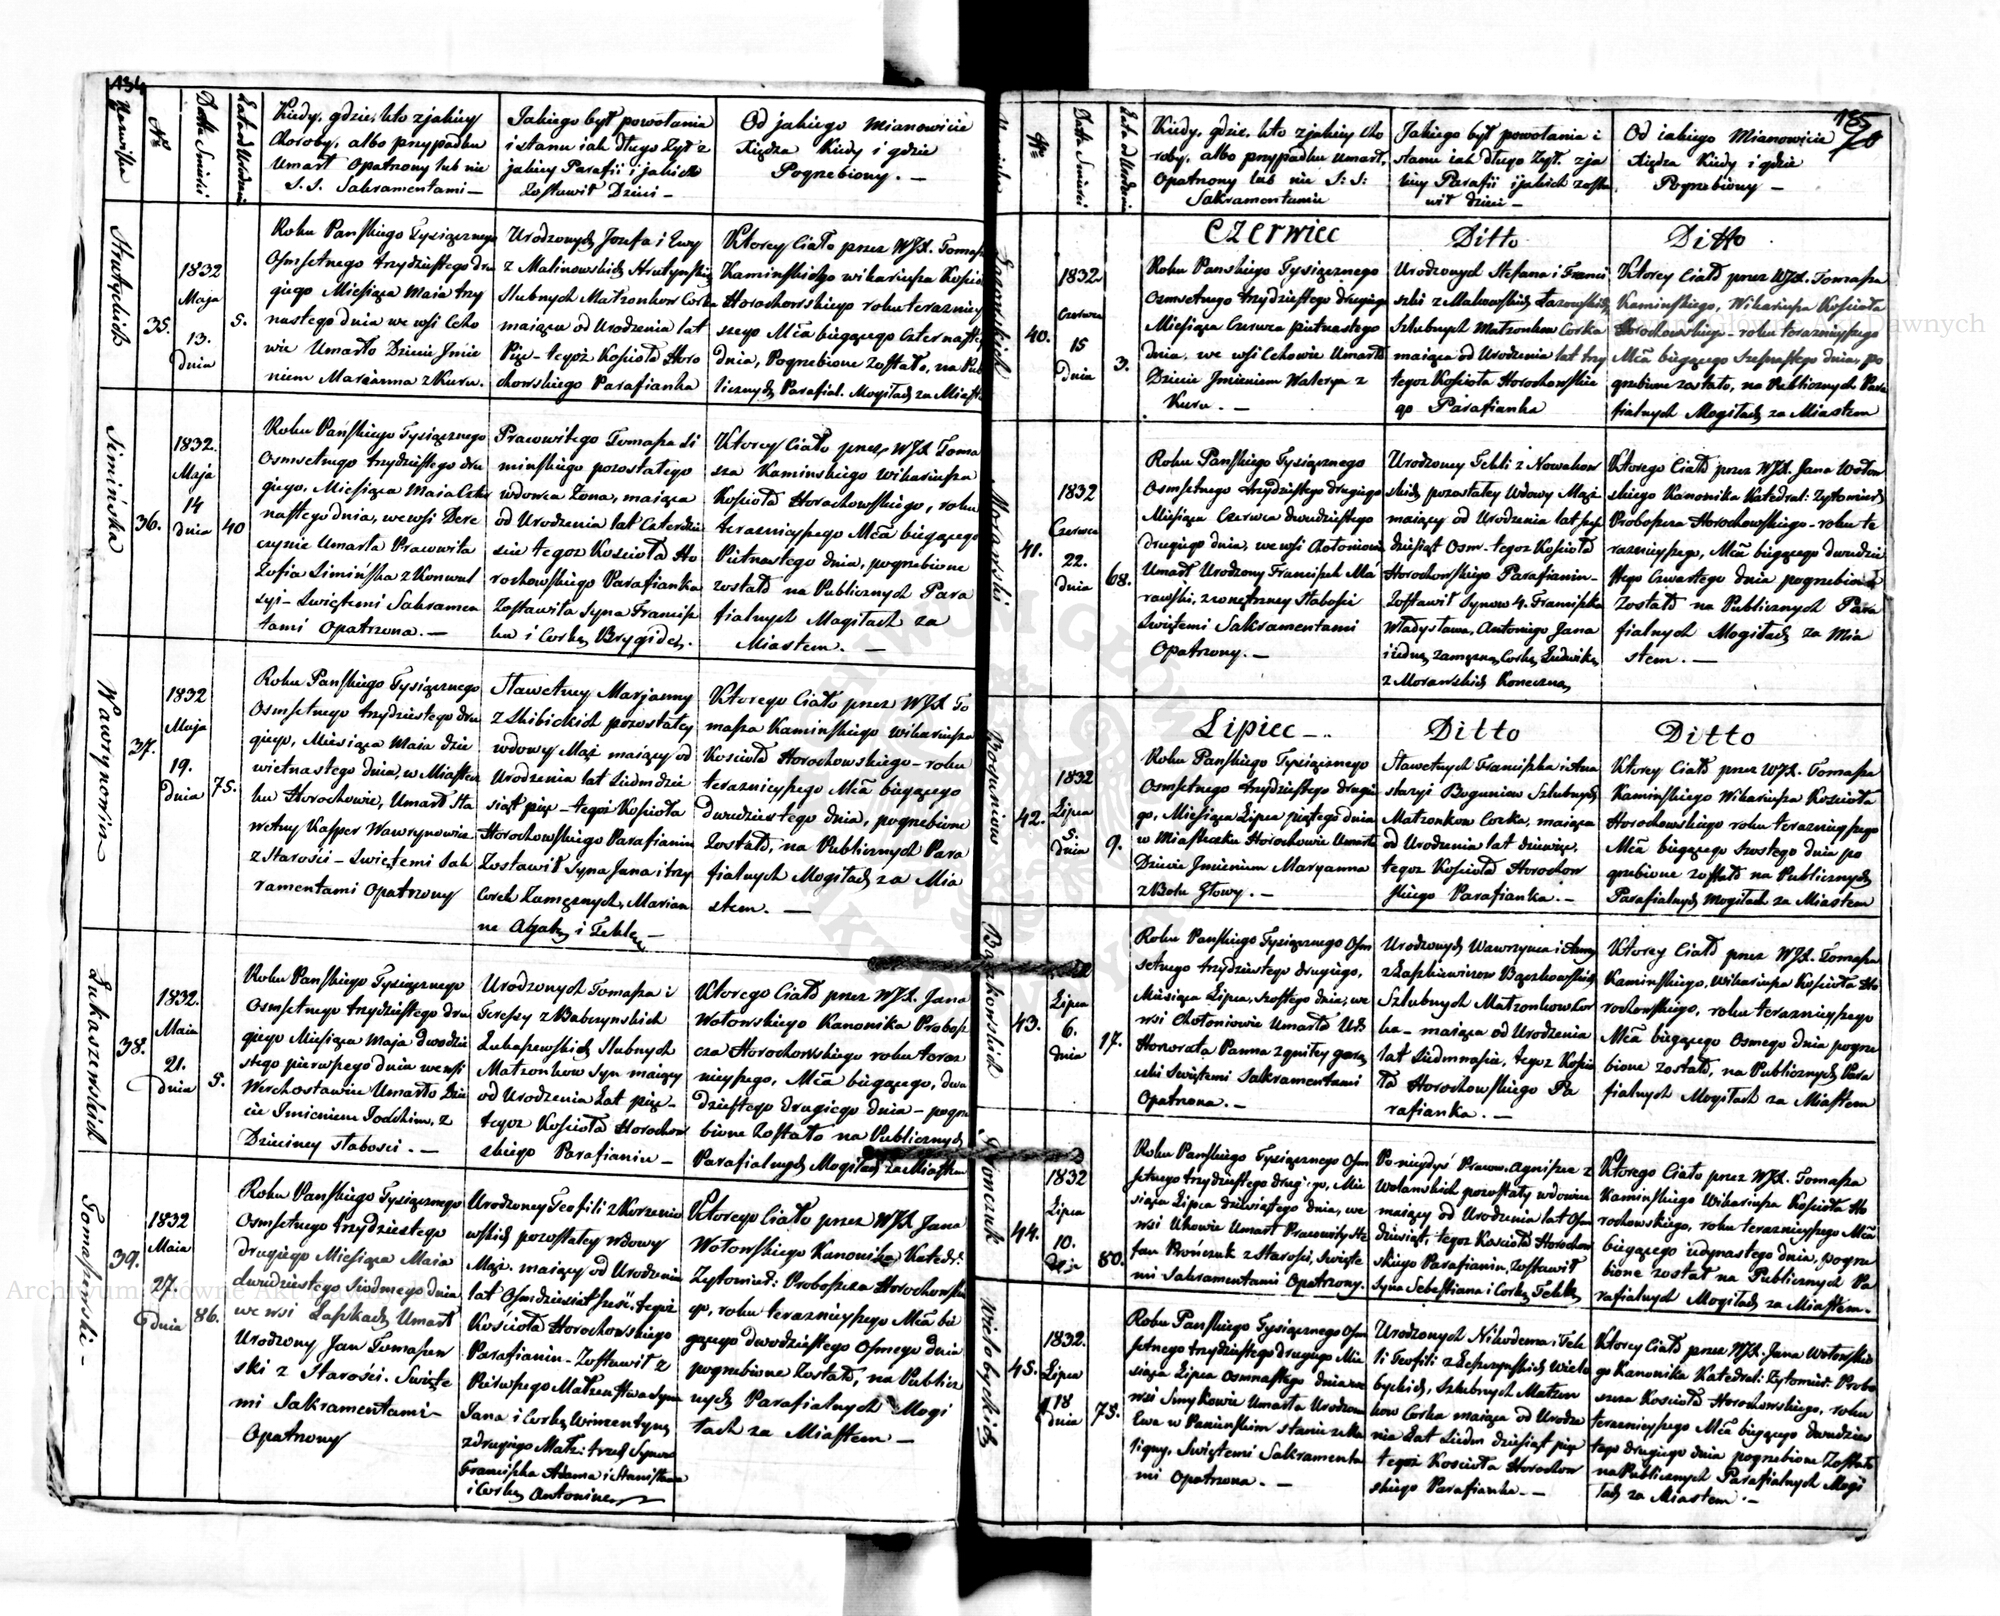 134
Nazwiska
Nr
Datta Smierci
Lata od Urodzenia
Kiedy, gdzie, kto z jakiey
Choroby, albo przypadku
Umarł Opatrzony lub nie
S. S. Sakramentami –
Jakiego był powołania
i stanu iak długo żył z
jakiey Parafii i jakich
Zostawił Dzieci –
Od jakiego Mianowicie
Xiędza Kiedy i gdzie
Pogrzebiony. –
35.
1832
Maja
13.
dnia
5.
Roku Pańskiego Tysiącznego
Osmsetnego trzydziestego dru
giego Miesiąca Maia trzy
nastego dnia we wsi
Umarło Dziecie Jmie
niem Marianna z Kuru.
Urodzonych Jozefa i Ewy
z Malinowskich
Slubnych Małzonkow Corka
maiąca od Urodzenia lat
Pięć – tegoż Kosciola Horo
chowskiego Parafianka
Ktorey Ciało przez WJX. Tomasza
Kaminskiego wikariusza Koscioła
Horochowskiego roku terazniey
szego Mca bieżącego Czternastego
dnia, Pogrzebione Zostało, na Pub
licznych Parafial. Mogiłach za Miast
Simińska
36.
1832.
Maja
14
dnia
40
Roku Pańskiego Tysiącznego
Osmsetnego trzydziestego dru
giego, Miesiąca Maia Czter
nastego dnia, we wsi Bere
czynie Umarła Pracowita
Zofia Simińska z Konwul
syi – Swiętemi Sakramen
tami Opatrzona. –
Pracowitego Tomasza Si
mińskiego pozostałego
wdowca Zona, maiąca
od Urodzenia lat Czterdzie
scie tegoz Koscioła Ho
rochowskiego Parafianka
Zostawiła Syna Francisz
ka i Corkę Brygidę.
Ktorey Ciało przez, WJX Toma
sza Kaminskiego Wikariusza
Koscioła Horochowskiego, roku
teraznieyszego Mca bieżącego
Piętnastego dnia, pogrzebione
zostało na Publicznych Para
fialnych Mogiłach za
Miastem. –
Wawrynowicz
37.
1832
Maja
19.
dnia
75.
Roku Pańskiego Tysiącznego
Osmsetnego trzydziestego dru
giego, Miesiąca Maia dzie
wietnastego dnia, w Miastecz
ku Horochowie, Umarł Sła
wetny Kasper Wawrynowicz
z Starości – Swiętemi Sak
ramentami Opatrzony
Sławetney Maryanny
z Skibickich pozostałey
wdowy Mąż maiący od
Urodzenia lat Siedmdzie
siąt pięć – tegoż Kościoła
Horochowskiego Parafianin
Zostawił Syna Jana i trzy
Corek Zamęznych, Marian
ne Agatę i Teklę –
Ktorego Ciało przez WJX To
masza Kaminskiego wikariusza
Koscioła Horochowskiego – roku
teraznieyszego Mca bieżącego
Dwudziestego dnia, pogrzebione
Zostało, na Publicznych Para
fialnych Mogiłach za Mia
stem. –
Łukaszewskich
38.
1832.
Maia
21.
dnia
5.
Roku Pańskiego Tysiącznego
Osmsetnego trzydziestego dru
giego Miesiąca Maja dwudzie
stego pierwszego dnia we wsi
Umarło Dzie
cie Jmieniem Joachim, z
Dziecinney słabosci. –
Urodzonych Tomasza i
Teressy z Babczynskich
Łukaszewskich Slubnych
Małzonkow Syn maiący
od Urodzenia Lat pięć –
tegoż Kościoła Horochow
skiego Parafianin –
Ktorego Ciało przez WJX. Jana
Wotowskiego Kanonika Probosz
cza Horochowskiego roku teraz
nieyszego, Mca bieżącego, dwu
dziestego drugiego dnia – pogrze
bione Zostało na Publicznych
Parafialnych Mogiłach za Miastem
Tomaszewski –
39.
1832
Maia
27
dnia
86.
Roku Pańskiego Tysiącznego
Osmsetnego trzydziestego
drugiego Miesiąca Maia
dwudziestego Siodmego dnia
we wsi Łaszkach, Umarł
Urodzony Jan Tomaszew
ski z Starości. Swięte
mi Sakramentami –
Opatrzony
Urodzoney Teofili z Korzenio
wskich pozostałey wdowy
Mąż. maiący od Urodzenia
lat Osmdziesiąt sześć. tegoż
Kościoła Horochowskiego
Parafianin – Zostawił z
Pierwszego Małżenstwa Syna
Jana i Corkę Wincentynę
z drugiego Małż: trzech Synow
Franciszka Adama i Stanisława
i Corkę Antoninę
Ktorego Ciało przez WJX Jana
Wotowskiego Kanonika Katedr:
Zytomier: Proboszcza Horochowskie
go, roku teraznieyszego Mca bie
żącego dwudziestego Osmego dnia
pogrzebione Zostało, na Publicz
nych Parafialnych Mogi
łach za Miastem –
135
Nr
Datta Smierci
Lata od Urodzenia
Kiedy, gdzie, kto z jakiey cho
roby, albo przypadku umarł,
Opatrzony lub nie S: S:
Sakramentami
Jakiego był powołania i
stanu iak długo Zył. z ja
kiey Parafii i jakich zosta
wił dzieci –
Od iakiego Mianowicie
Xiędza Kiedy i gdzie
Pogrzebiony –
Czerwiec
Ditto
Ditto
Łazowskich
40.
1832
Czerwca
15
dnia
3.
Roku Panskiego Tysiącznego
Osmsetnego trzydziestego drugiego
Miesiąca Czerwca piętnastego
dnia, we wsi Umarło
Dziecie Jmieniem Walerya z
Kuru. –
Urodzonych Stefana i Franci
szki z Łazowskich
Szlubnych Małzonkow Corka
maiąca od Urodzenia lat trzy
tegoz Koscioła Horochowskie
go Parafianka
Ktorey Ciało przez WJX. Tomasza
Kaminskiego, Wikariusza Kościoła
Horochowskiego – roku teraznieyszego
Mca bieżącego Szesnastego dnia, po
grzebione zostało, na Publicznych Para
fialnych Mogiłach za Miastem
Morawski
41.
1832
Czerwca
22.
dnia
68.
Roku Pańskiego Tysiącznego
Osmsetnego trzydziestego drugiego
Miesiąca Czerwca dwudziestego
drugiego dnia, we wsi
Umarł Urodzony Franciszek Mo
rawski, z wnętrzney Słabosci
Swiętemi Sakramentami
Opatrzony. –
Urodzoney Tekli z Nowakow
skich pozostałey Wdowy Mąż
maiący od Urodzenia lat sześ
dziesiąt Osm – tegoz Koscioła
Horochowskiego Parafianin –
Zostawił Synow 4. Franciszka
Władysława, Antoniego Jana
i iednę zamęzną Corkę, Ludwikę
z Morawskich Koneczną
Ktorego Ciało przez WJX. Jana Wotow
skiego Kanonika Katedral: Zytomiersk
Proboszcza Horochowskiego – roku te
raznieyszego, Mca bieżącego dwudzie
stego Czwartego dnia pogrzebione
Zostało na Publicznych Para
fialnych Mogiłach za Mia
stem. –
Lipiec –
Ditto
Ditto
Boguniow
42.
1832
Lipca
5.
dnia
9.
Roku Pańskiego Tysiącznego
Osmsetnego trzydziestego drugie
go, Miesiąca Lipca piątego dnia
w Miasteczku Horochowie Umarło
Dziecie Jmieniem Maryanna
z Bolu Głowy. –
Sławetnych Franciszka i Ana
stazyi Boguniow Szlubnych
Małzonkow Corka, maiąca
od Urodzenia lat dziewięć,
tegoz Kościoła Horochow
skiego Parafianka. –
Ktorey Ciało przez WJX. Tomasza
Kaminskiego Wikariusza Kościoła
Horochowskiego roku teraznieyszego
Mca bieżącego Szostego dnia po
grzebione zostało na Publicznych
Parafialnych Mogiłach za Miastem
Bączkowskich
43.
Lipca
6.
dnia
17.
Roku Pańskiego Tysiącznego Osm
setnego trzydziestego drugiego,
Miesiąca Lipca, Szostego dnia, we
wsi Chołoniowie Umarła Ur:
Honorata Panna z gniłey gorą
czki Swiętemi Sakramentami
Opatrzona. –
Urodzonych Wawrzynca i Anny
z Łaszkiewiczow Bączkowskich
Szlubnych Małzonkow Cor
ka – maiąca od Urodzenia
lat Siedmnascie, tegoz Koscio
ła Horochowskiego Pa
rafianka. –
Ktorey Ciało przez WJX. Tomasza
Kaminskiego, Wikariusza Kościoła Ho
rochowskiego, roku teraznieyszego
Mca bieżącego Osmego dnia pogrze
bione zostało, na Publicznych Para
fialnych Mogiłach za Miastem
Prończuk
44.
1832
Lipca
10.
dnia
80.
Roku Pańskiego Tysiącznego Osm
setnego trzydziestego drugiego, Mie
siąca Lipca dziewiątego dnia, we
wsi Umarł Pracowity Ste
fan Prończuk z Starości, Swięte
mi Sakramentami Opatrzony.
Po niegdyś Pracow. Agnieszce z
Wolanskich pozostały wdowiec
maiący od Urodzenia lat Osm
dziesiąt, tegoz Kościoła Horochow
skiego Parafianin, Zostawił
Syna Sebestiana i Corkę Teklę
Ktorego Ciało przez WJX. Tomasza
Kaminskiego Wikariusza Kościoła Ho
rochowskiego, roku teraznieyszego Mca
bieżącego iedynastego dnia, pogrze
bione zostało na Publicznych Pa
rafialnych Mogiłach za Miastem.
Wielobyckich
45.
1832.
Lipca
18
dnia
75.
Roku Pańskiego Tysiącznego Osm
setnego trzydziestego drugiego Mie
siąca Lipca Osmnastego dnia we
wsi Umarła Urodzona
Ewa w Panieńskim stanie
Swiętemi Sakramenta
mi Opatrzona. –
Urodzonych Nikodema i Tek
li Teofili z Wielo
byckich, Szlubnych Małzon
kow Corka maiąca od Urodze
nia Lat Siedm dziesiąt pięć
tegoż Kościoła Horochow
skiego Parafianka. –
Ktorey Ciało przez WJX. Jana Wotowskie
go Kanonika Katedral: Zytomier: Probo
szcza Kościoła Horochowskiego, roku
teraznieyszego Mca bieżącego dwudzies
tego drugiego dnia pogrzebione Zostało
na Publicznych Parafialnych Mogi
łach za Miastem –